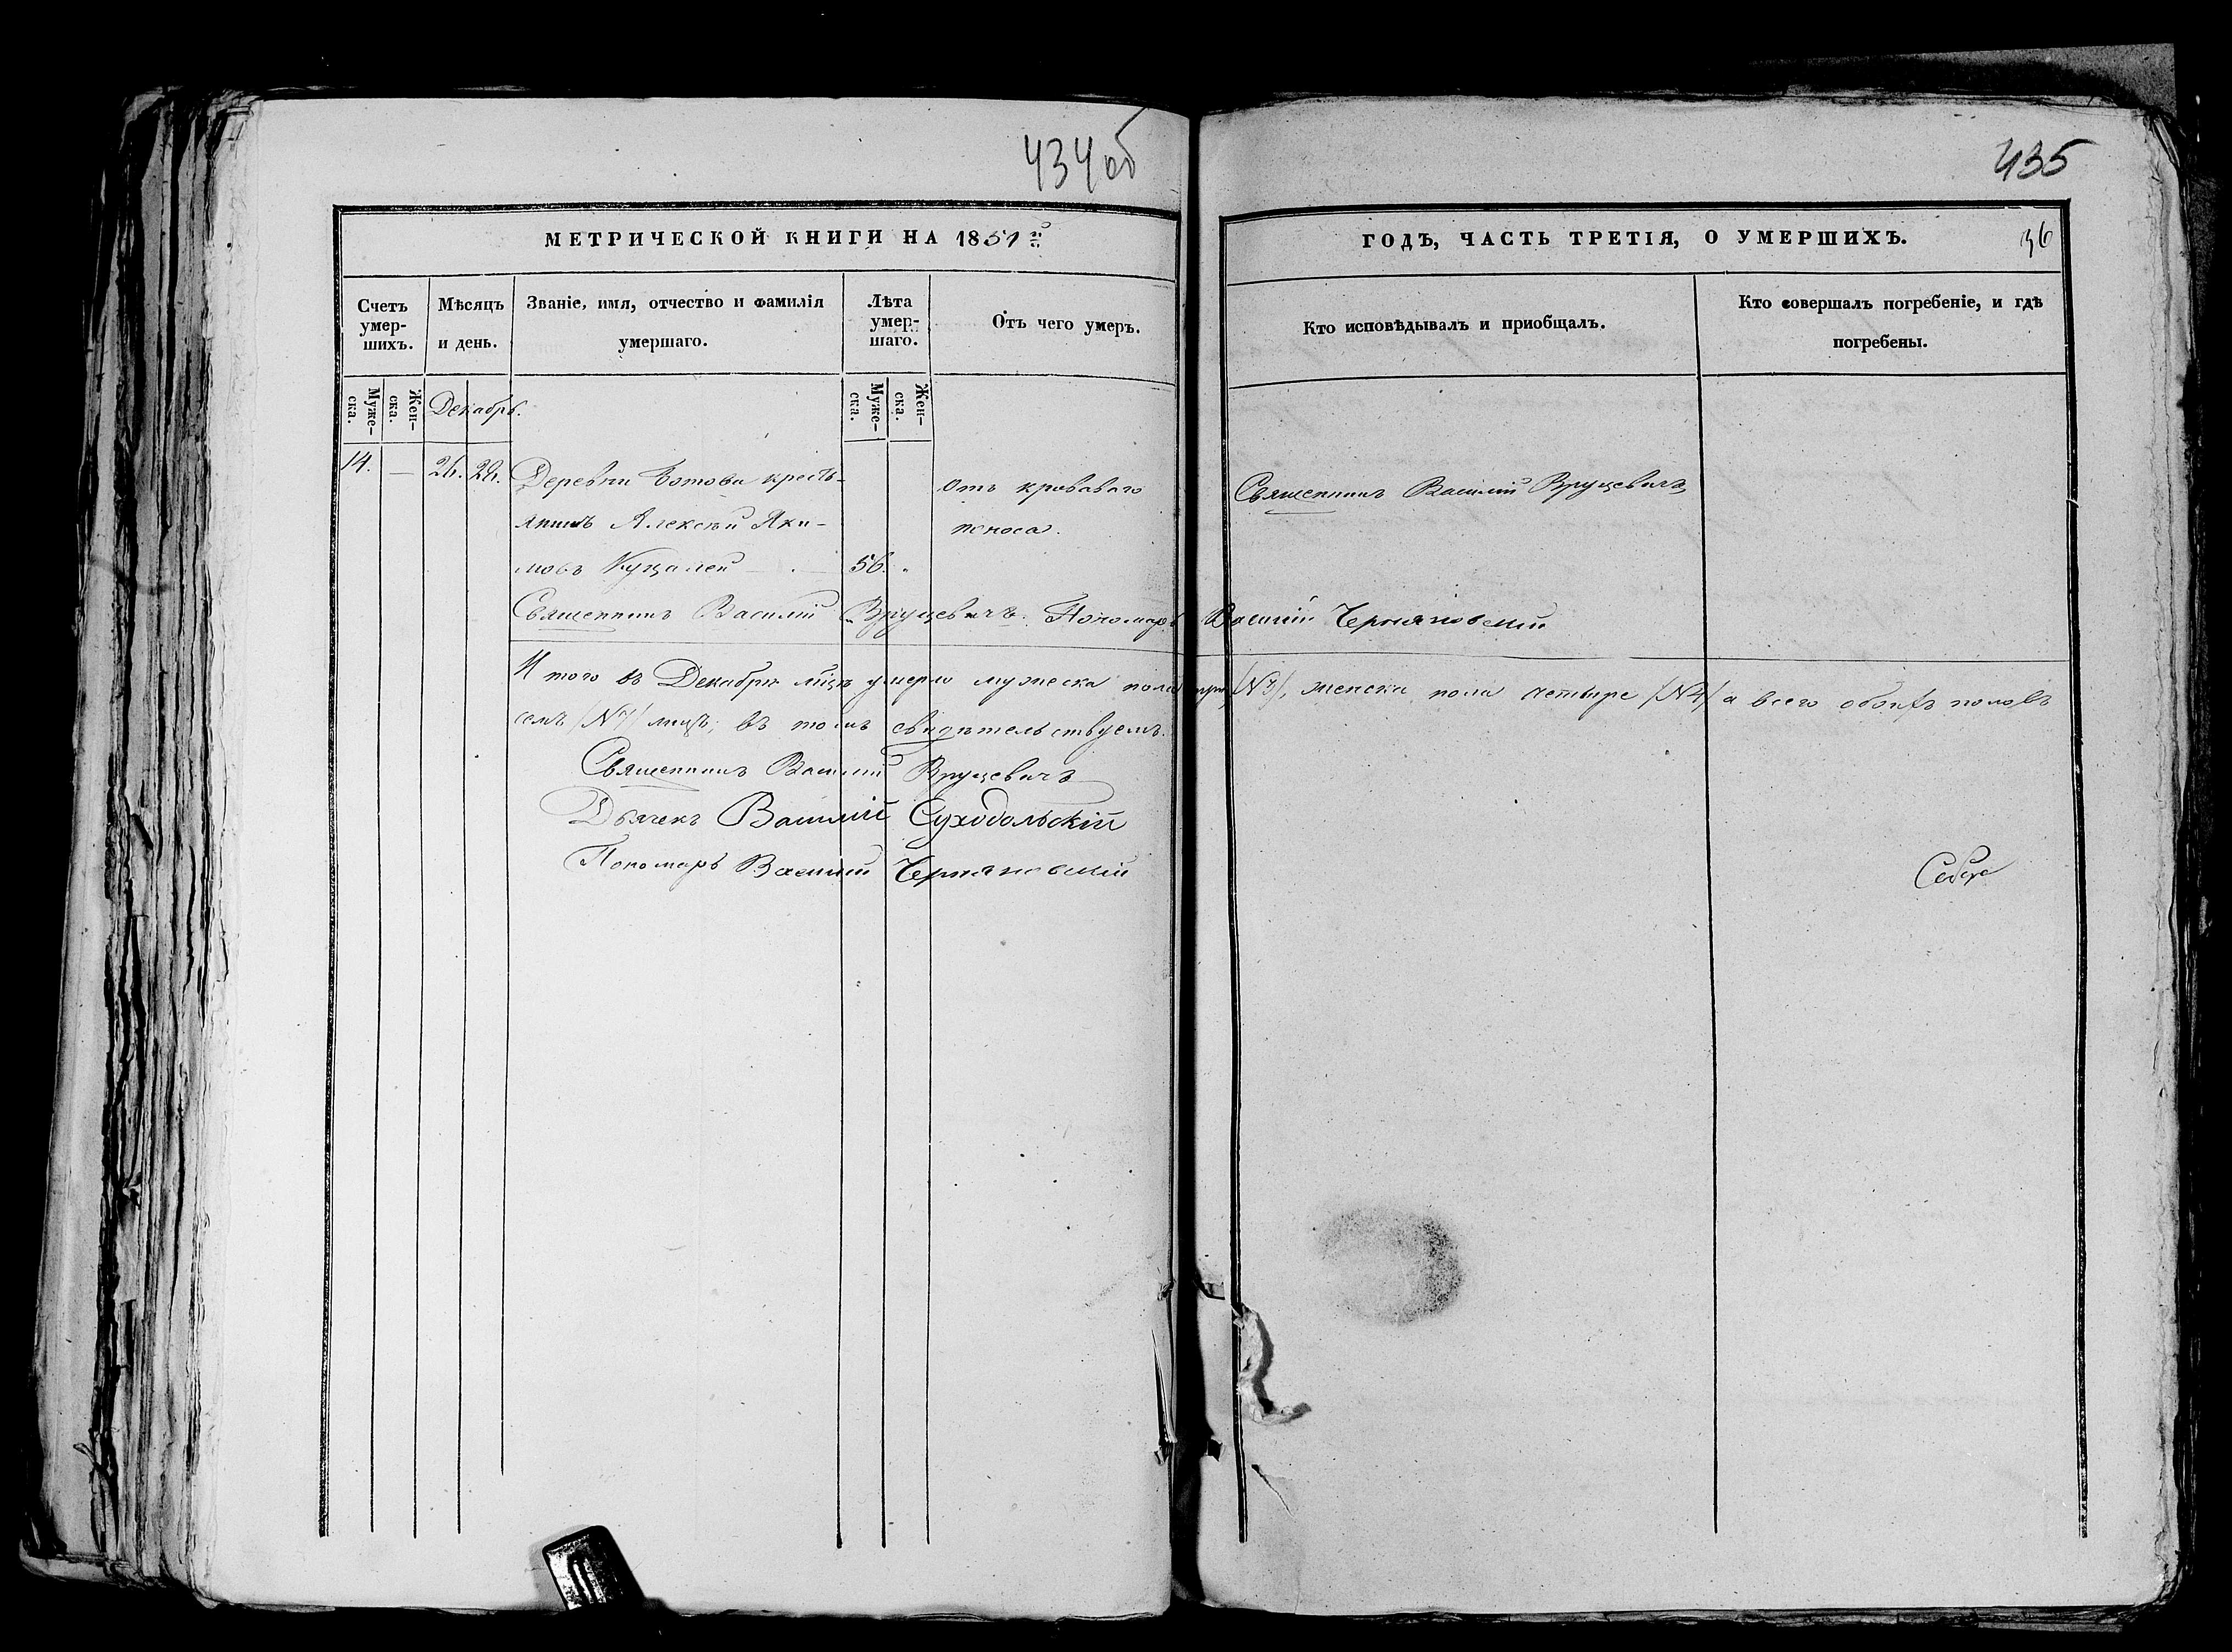 434об
435
МЕТРИЧЕСКОЙ КНИГИ НА 1851й
ГОДЪ, ЧАСТЬ ТРЕТІЯ, О УМЕРШИХЪ.
36
Счетъ умер-
шихъ.
Мѣсяцъ
и день.
Званіе, имя, отчество и фамилія
умершаго.
Лѣта
умер-
шаго.
Отъ чего умеръ.
Кто исповѣдывалъ и приобщалъ.
Кто совершалъ погребеніе, и гдѣ
погребены.
Муже-
ска.
Жен-
ска.
Декабрь.
Муже-
ска.
Жен-
ска.
14. — 26. 28. Деревни Ботова кресть-
янинъ Алексѣй Яки-
мовъ Куцалей — 56. "
Отъ кроваваго
поноса.
Священникъ Василій Вруцевичъ
Священникъ Василій Вруцевичъ. Пономарь Василій Черняковскій
И того въ Декабрѣ мѣцѣ умерло мужеска пола три /№3/, женска пола четыре /№4/ а всего обоихъ половъ
семь /№7/ лицъ; въ томъ свидѣтельствуемъ.
Священникъ Василій Вруцевичъ
Дьячекъ Василій Суходольскій
Пономарь Василій Черняковскій